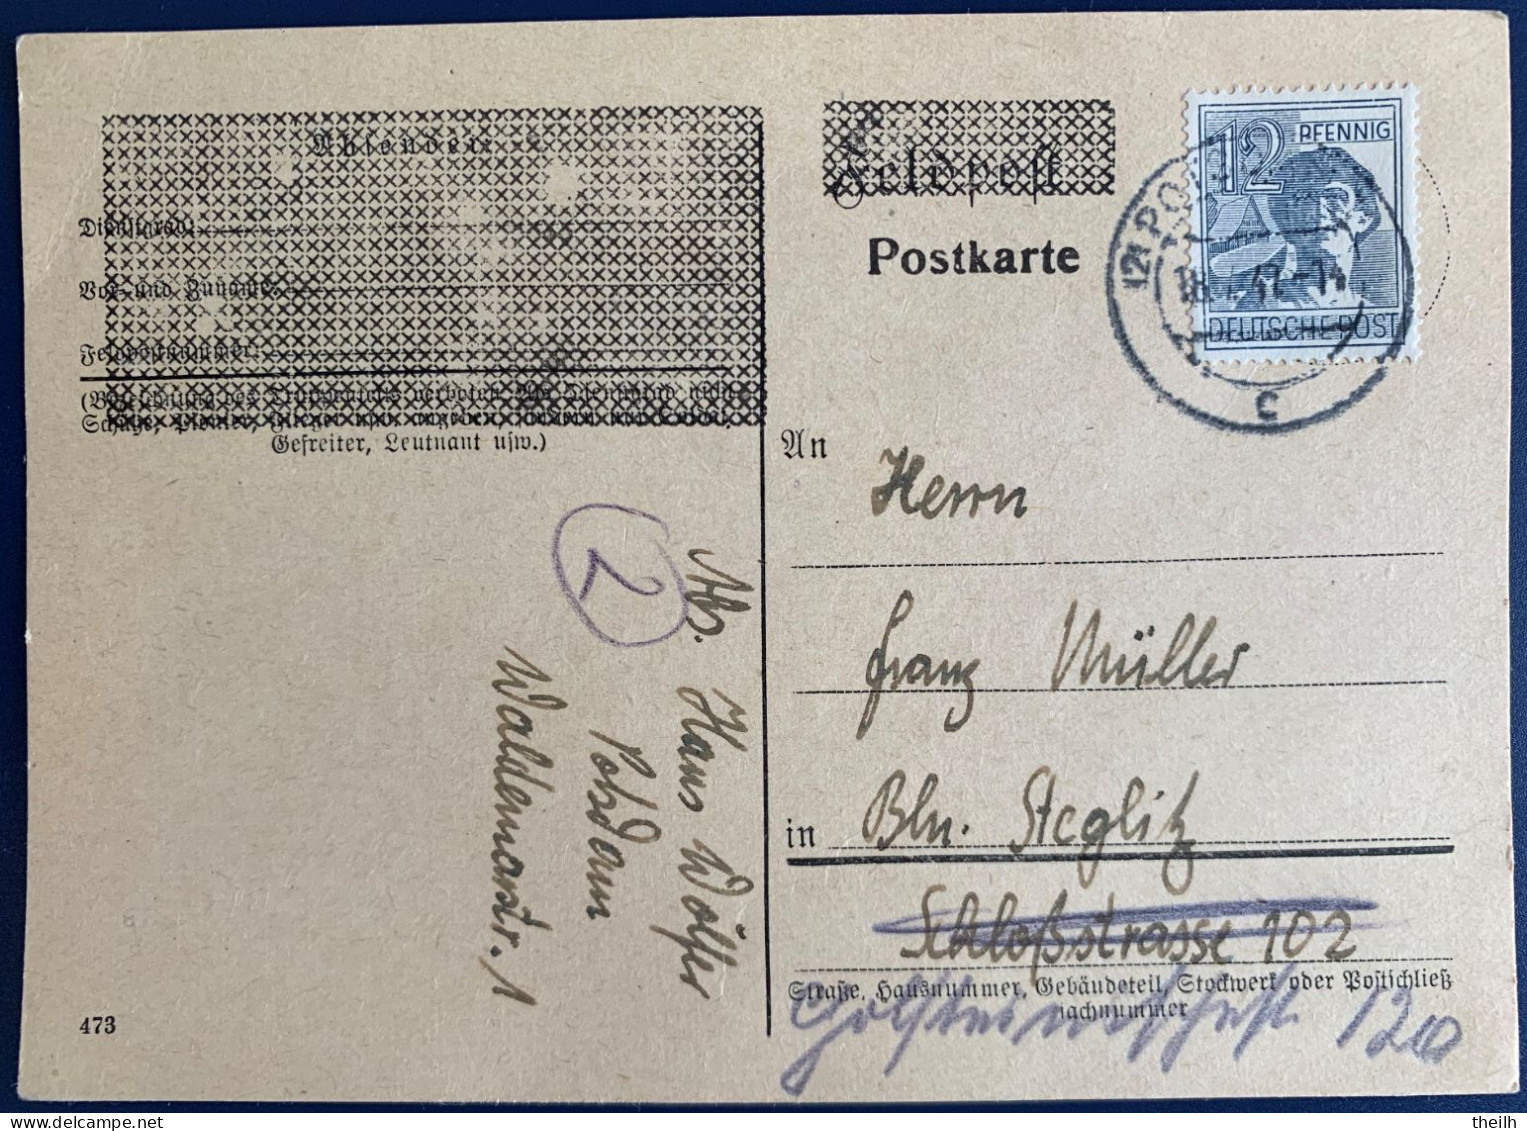 Absender:
Dienstgrad:
Vor- und Zuname:
Feldpostnummer:
(Bezeichnung des Truppenteils verboten. Als Dienstgrad nur
Schütze, Pionier, Flieger usw. angeben, sondern nur Soldat,
Gefreiter, Leutnant usw.)
Feldpost
Postkarte
12 PFENNIG
DEUTSCHE POST
c
An Herrn
Franz Müller
in Bln. Steglitz
Schloßstrasse 102
Straße, Hausnummer, Gebäudeteil, Stockwerk oder Postschließ
fachnummer
2
Abs. Hans Wölfer
Potsdam
Waldemarstr. 1
473
theilh